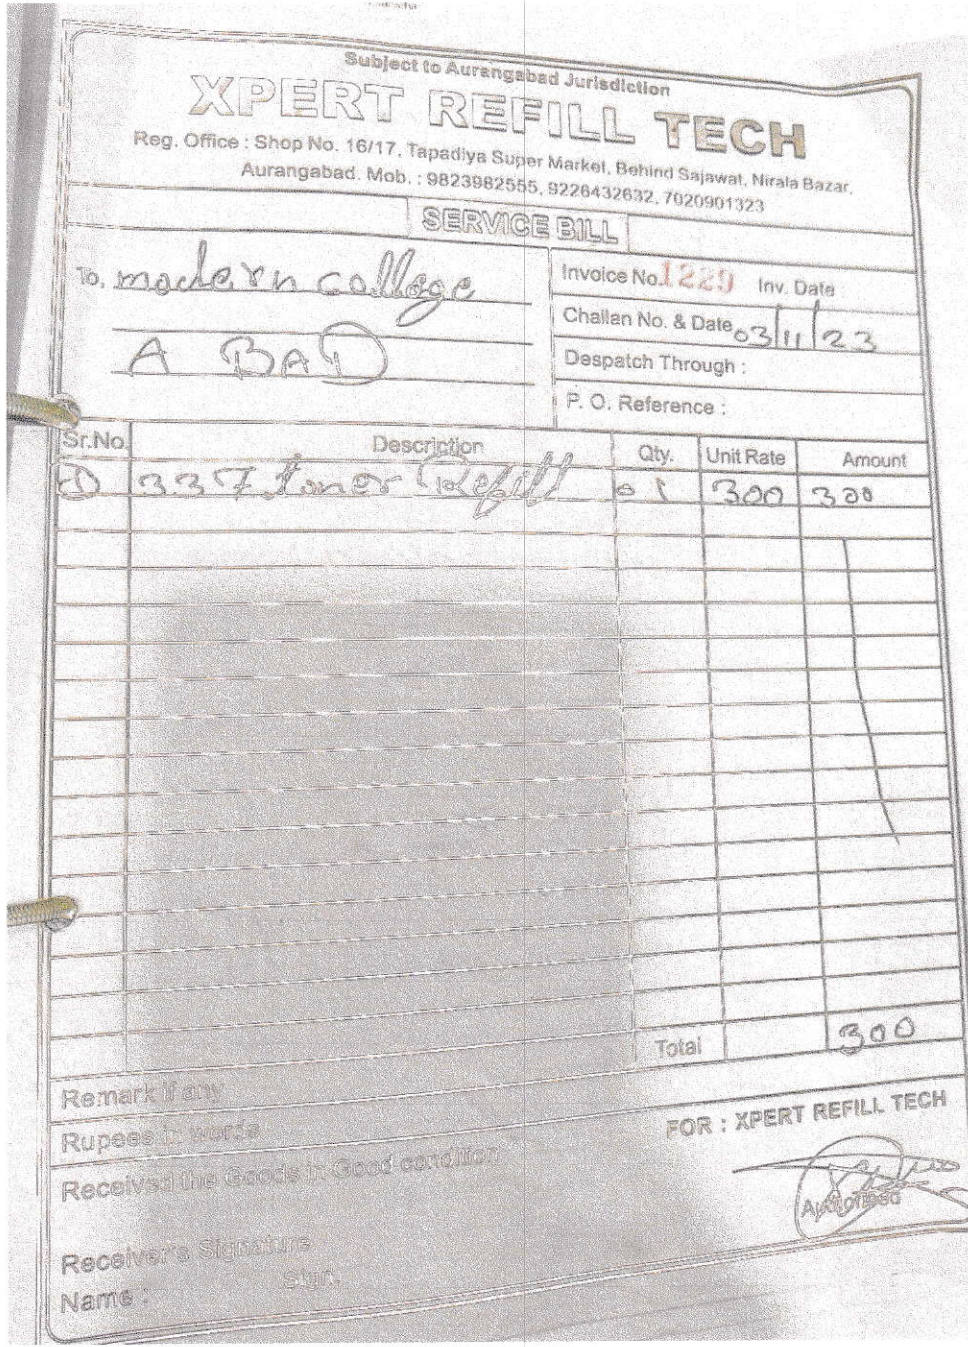 Subject to Aurangabad Jurisdiction
XPERT REFILL TECH
Reg. Office : Shop No. 16/17, Tapadiya Super Market, Behind Sajawat, Nirala Bazar,
Aurangabad. Mob. : 9823982555, 9226432632, 7020901323
SERVICE BILL
To, modern college
A BAD
Invoice No. 1229 Inv. Date
Challan No. & Date 03/11/23
Despatch Through :
P. O. Reference :
Sr.No. Description Qty. Unit Rate Amount
1 337 toner Refill 01 300 300
Total 300
Remark if any
Rupees in words
FOR : XPERT REFILL TECH
Received the Goods in Good condition
Authorised
Receiver's Signature
Sign.
Name :